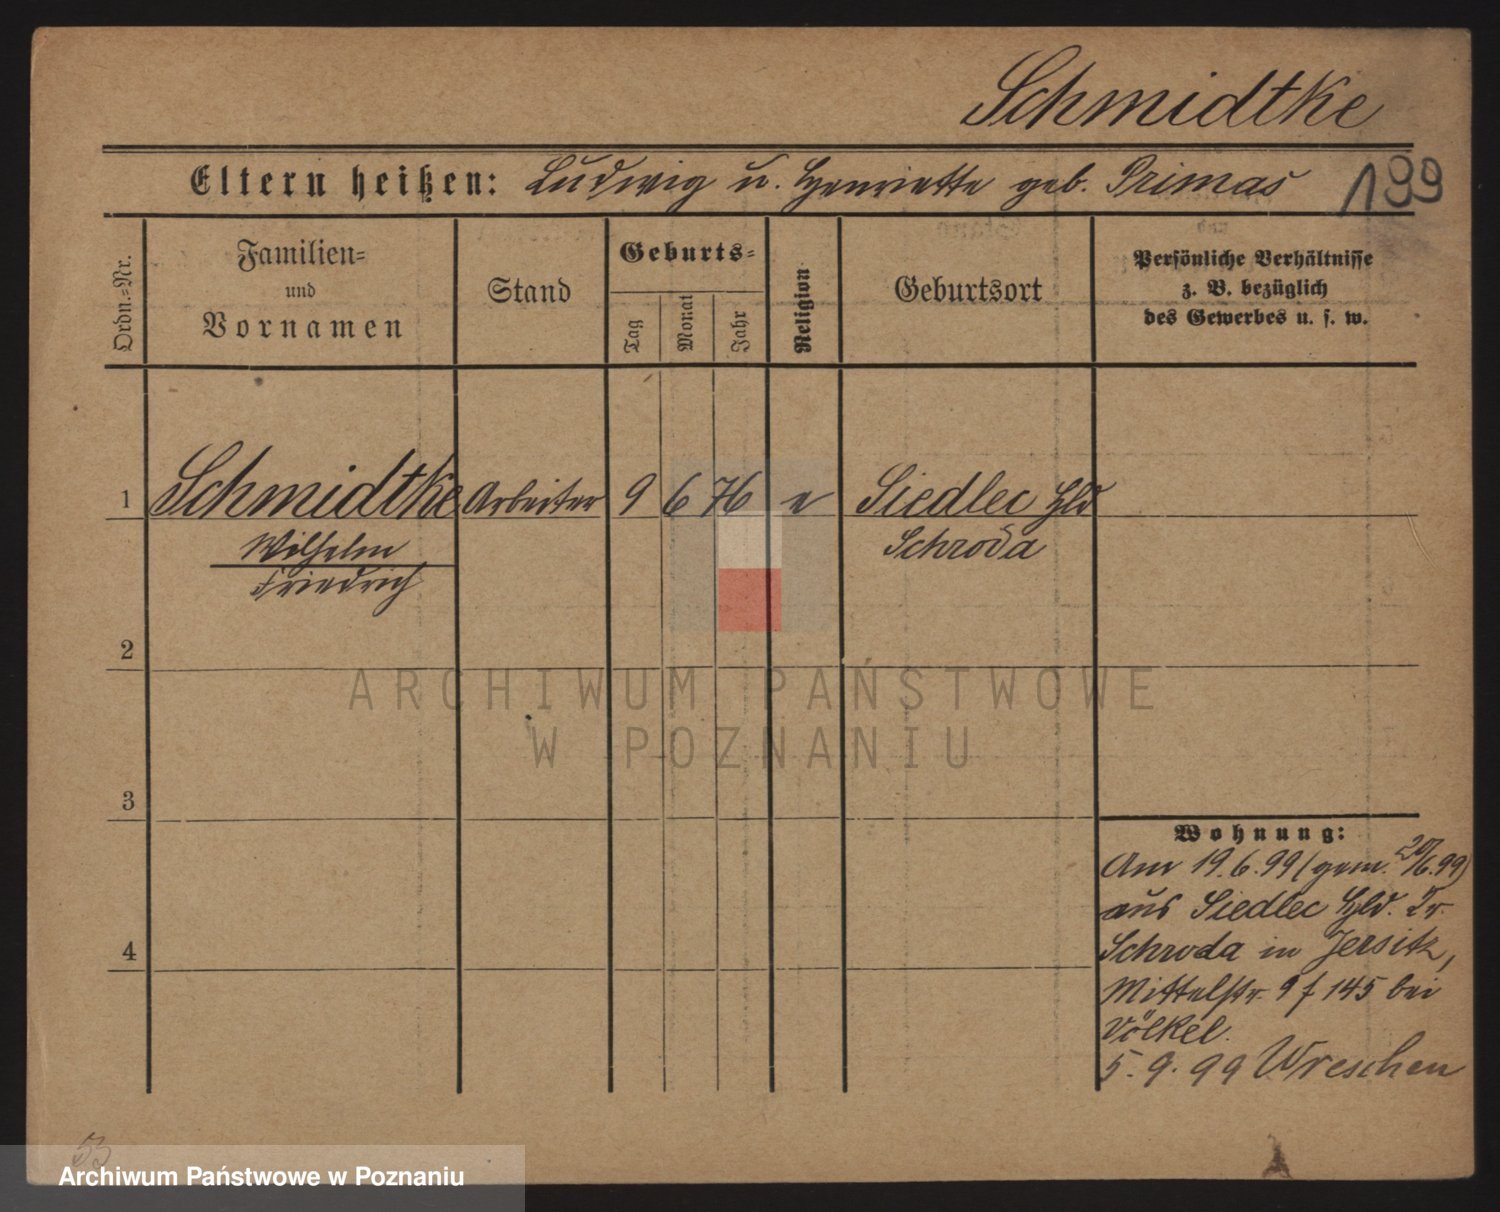 Schmidtke
Eltern heißen: Ludwig u. Henriette geb. Primas
199
Ordn.-Nr.
Familien-
und
Vornamen
Stand
Geburts-
Tag
Monat
Jahr
Religion
Geburtsort
Persönliche Verhältnisse
z. B. bezüglich
des Gewerbes u. s. w.
1 Schmidtke Arbeiter 9 6 76 e Siedlec Hld
Wilhelm Schroda
Friedrich
2
ARCHIWUM PAŃSTWOWE
W POZNANIU
3
4
Wohnung:
Am 19.6.99 (gem. 20/6.99)
aus Siedlec Hld. Kr.
Schroda in Jersitz,
Mittelstr. 9 f 145 bei
Völkel.
5.9.99 Wreschen
53
Archiwum Państwowe w Poznaniu